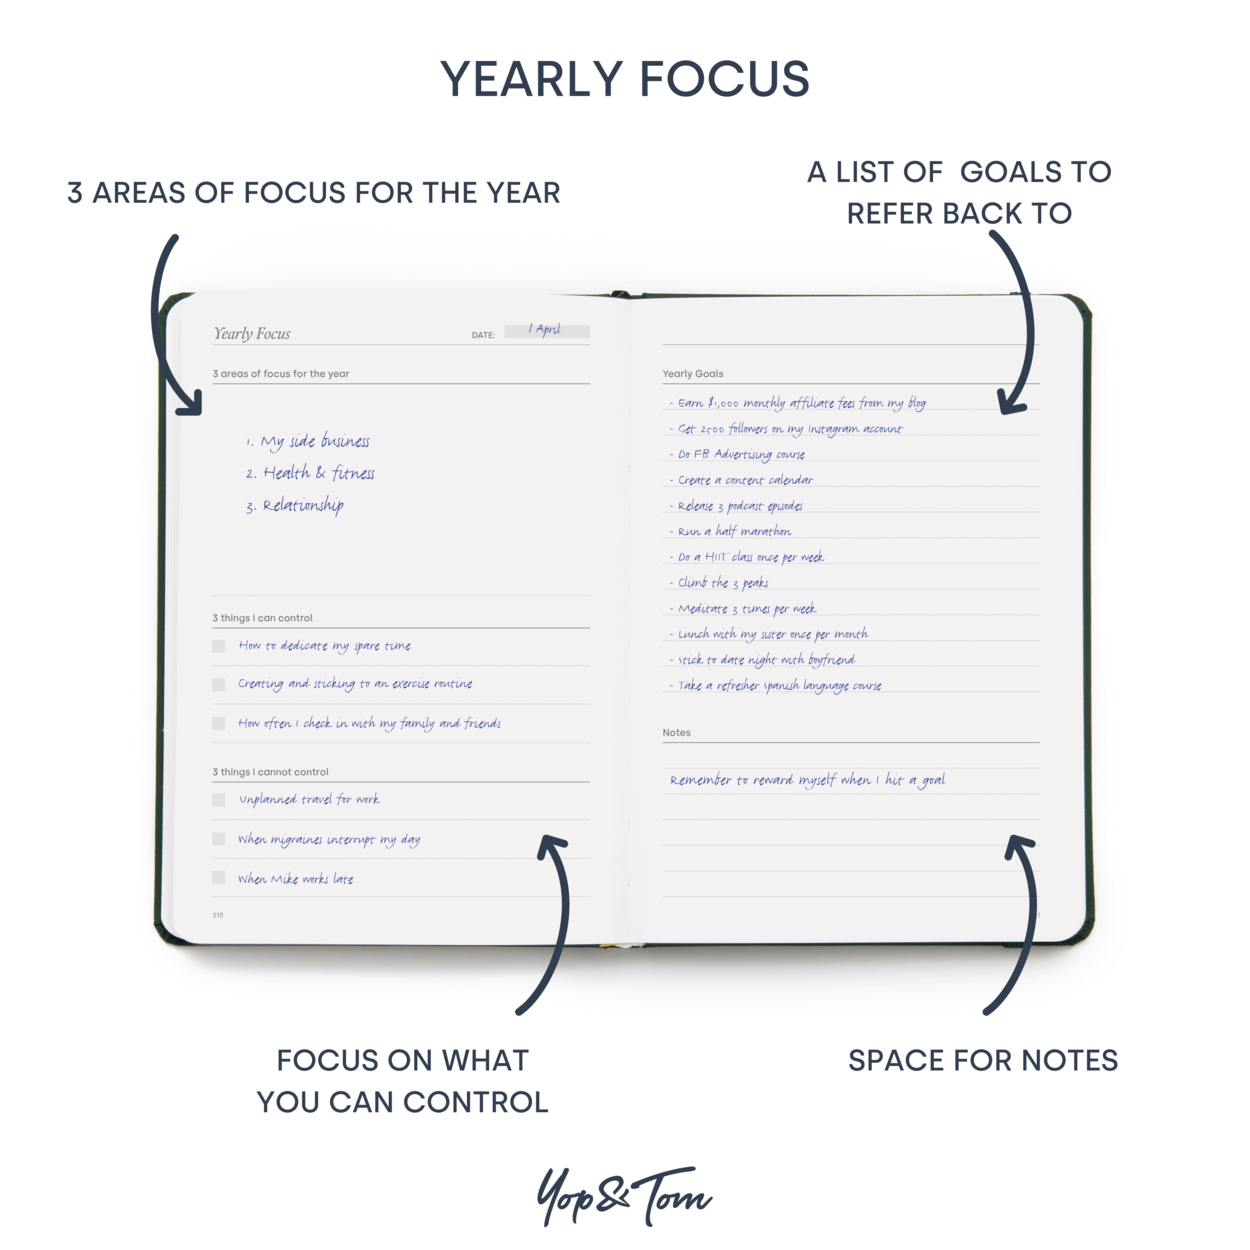 YEARLY FOCUS
3 AREAS OF FOCUS FOR THE YEAR
A LIST OF GOALS TO
REFER BACK TO
Yearly Focus
DATE: 1 April
3 areas of focus for the year
1. My side business
2. Health & fitness
3. Relationship
3 things I can control
How to dedicate my spare time
Creating and sticking to an exercise routine
How often I check in with my family and friends
3 things I cannot control
Unplanned travel for work
When migraines interrupt my day
When Mike works late
210
Yearly Goals
- Earn $1,000 monthly affiliate fees from my blog
- Get 2500 followers on my Instagram account
- Do FB Advertising course
- Create a content calendar
- Release 3 podcast episodes
- Run a half marathon
- Do a HIIT class once per week
- Climb the 3 peaks
- Meditate 3 times per week
- Lunch with my sister once per month
- Stick to date night with boyfriend
- Take a refresher Spanish language course
Notes
Remember to reward myself when I hit a goal
FOCUS ON WHAT
YOU CAN CONTROL
SPACE FOR NOTES
Yop&Tom